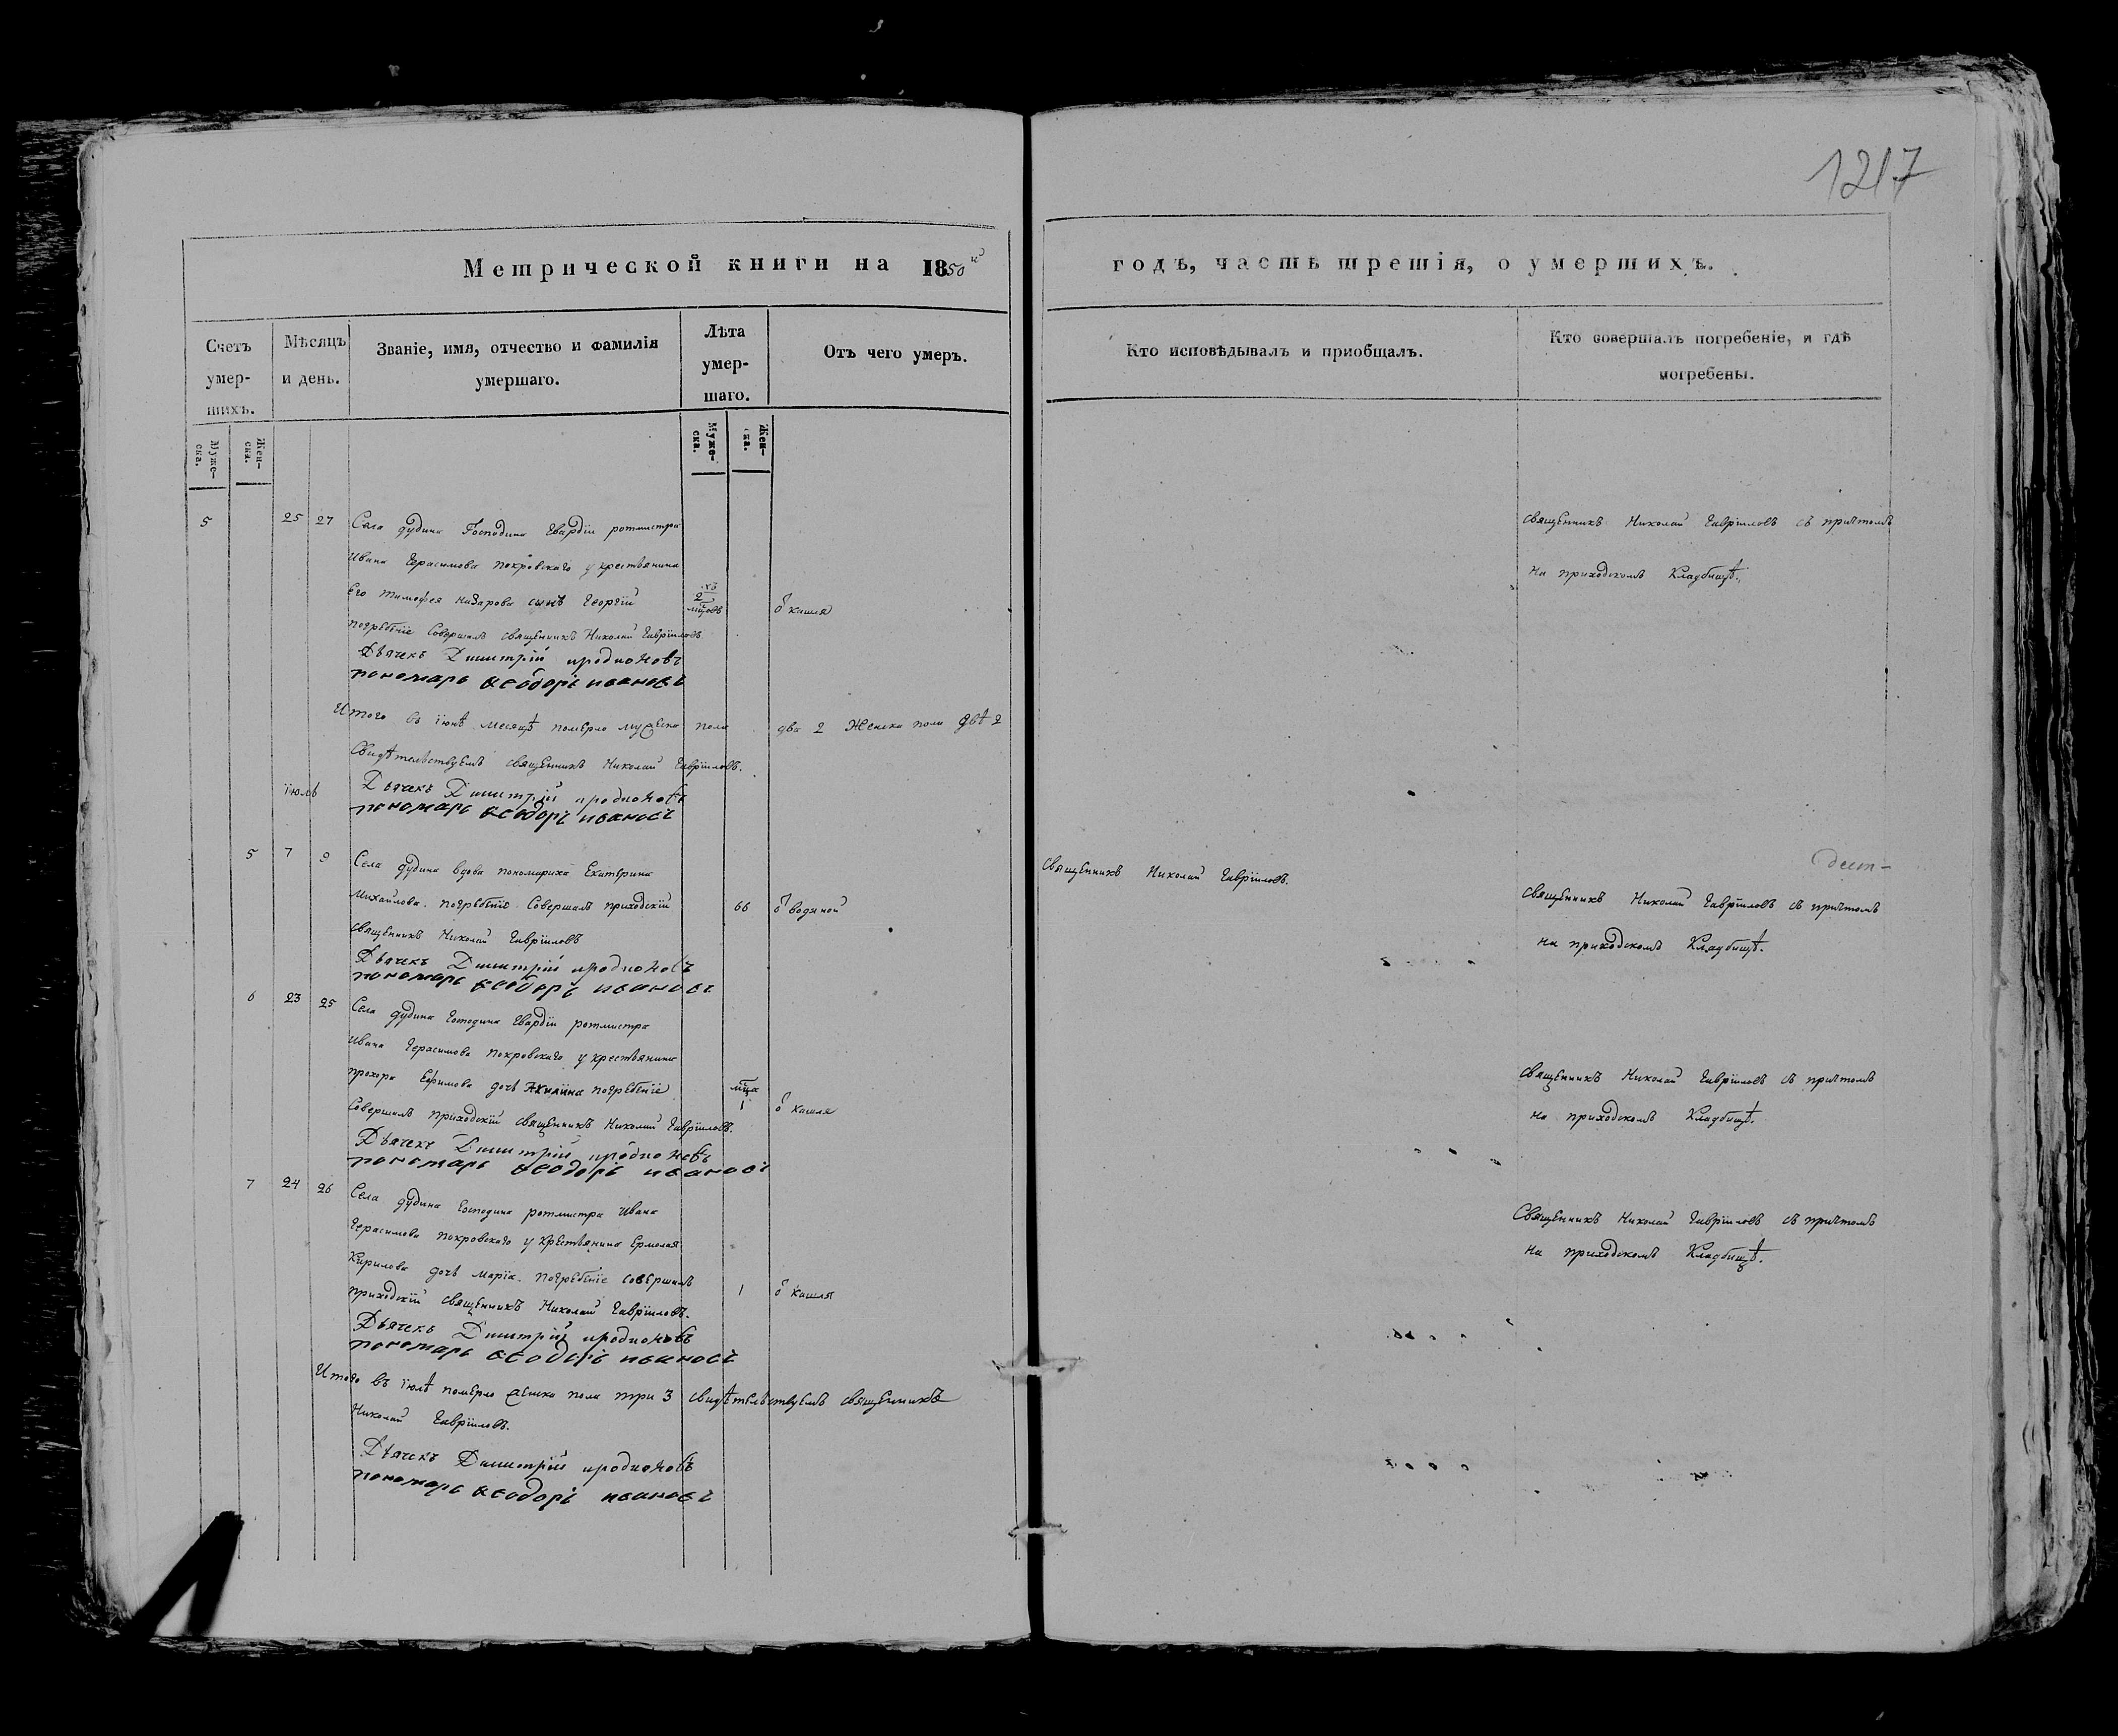 1217
Метрической книги на 1850й
годъ, часть третія, о умершихъ.
Счетъ умер-шихъ.
Мѣсяцъ и день.
Званіе, имя, отчество и фамилія умершаго.
Лѣта умер-шаго.
Отъ чего умеръ.
Кто исповѣдывалъ и пріобщалъ.
Кто совершалъ погребеніе, и гдѣ погребены.
Муже-ска.
Жен-ска.
Муже-ска.
Жен-ска.
5 25 27 Села Дудина Господина Гвардіи ротмистра
Ивана Герасимова Покровскаго у крестьянина
Его Тимофея Назарова сынъ Георгій 2 мцовъ ѿ кашля
погребеніе Совершалъ священникъ Николай Гавріиловъ
Дьячекъ Димитрій иродионовъ
пономарь Ѳеодоръ ивановъ
священникъ Николай Гавріиловъ съ причтомъ
На приходскомъ Кладбищѣ.
Итого въ іюнѣ месяцѣ померло мужеска пола два 2 Женска пола двѣ 2
Свидѣтельствуемъ священникъ Николай Гавріиловъ.
Дьячекъ Димитрій иродионовъ
пономарь Ѳеодоръ ивановъ
іюль
5 7 9 Села Дудина вдова пономариха Екатерина
Михайлова. погребеніе Совершалъ приходскій 66 ѿ водяной
священникъ Николай Гавріиловъ
Дьячекъ Димитрій иродионовъ
пономарь Ѳеодоръ ивановъ
Священникъ Николай Гавріиловъ.
священникъ Николай Гавріиловъ съ причтомъ
на приходскомъ Кладбищѣ.
6 23 25 Села Дудина Господина Гвардіи ротмистра
Ивана Герасимова Покровскаго у крестьянина
прохора Ефимова дочь Акилина погребеніе мца 1 ѿ кашля
Совершалъ приходскій священникъ Николай Гавріиловъ.
Дьячекъ Димитрій иродионовъ
пономарь Ѳеодоръ ивановъ
священникъ Николай Гавріиловъ съ причтомъ
на приходскомъ Кладбищѣ.
7 24 26 Села Дудина Господина ротмистра Ивана
Герасимова Покровскаго у крестьянина Ермолая
Кирилова дочь Марія. погребеніе совершалъ 1 ѿ кашля
приходскій священникъ Николай Гавріиловъ.
Дьячекъ Димитрій иродионовъ
пономарь Ѳеодоръ ивановъ
Священникъ Николай Гавріиловъ съ причтомъ
На приходскомъ Кладбищѣ.
Итого въ іюлѣ померло женска пола три 3 свидѣтельствуемъ священникъ
Николай Гавріиловъ.
Дьячекъ Димитрій иродионовъ
пономарь Ѳеодоръ ивановъ